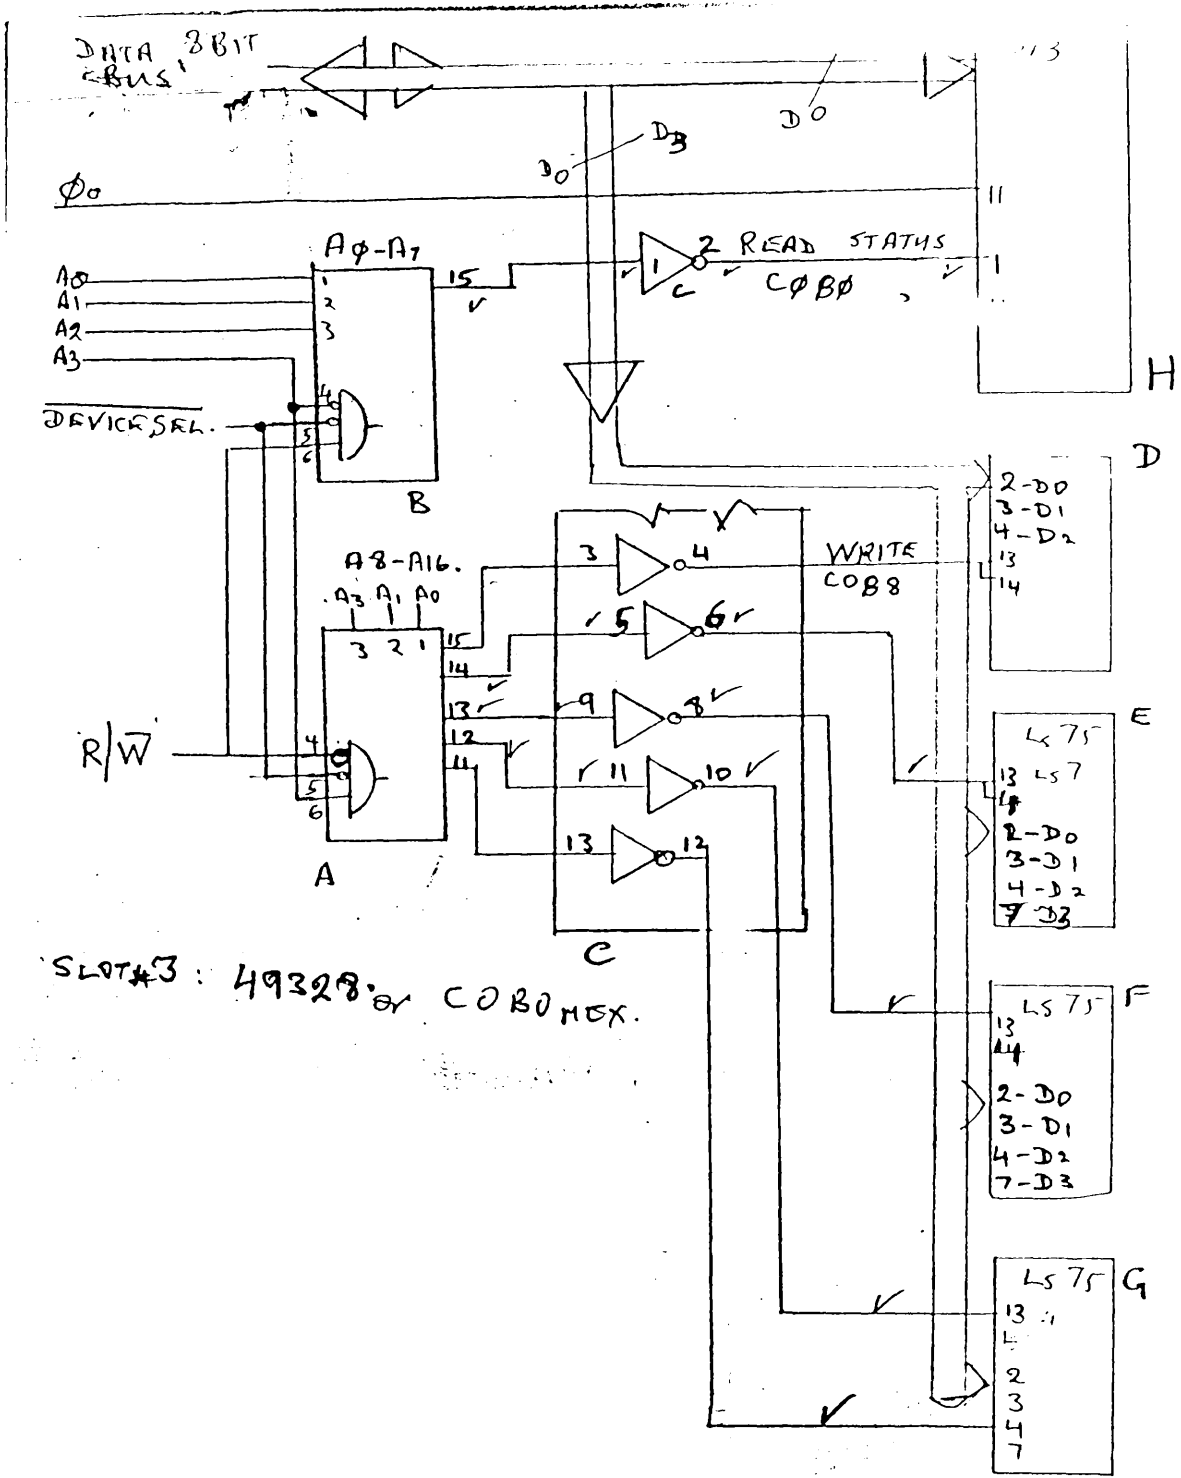 DATA 8BIT
BUS
D0
D0
D3
Φ0
11
AΦ-A7
A0
A1
A2
A3
1
2
3
4
5
6
15
1
2
C
READ STATUS
CΦBΦ
1
H
DEVICE SEL.
B
D
2-D0
3-D1
4-D2
13
14
A8-A16.
A3 A1 A0
3 2 1
15
14
13
12
11
3
4
WRITE
COB8
5
6
9
8
11
10
13
12
R/W
4
5
6
A
C
E
LS 75
13 LS7
14
2-D0
3-D1
4-D2
7-D3
SLOT#3: 49328. or COBO HEX.
F
LS 75
13
14
2-D0
3-D1
4-D2
7-D3
G
LS 75
13
2
3
4
7